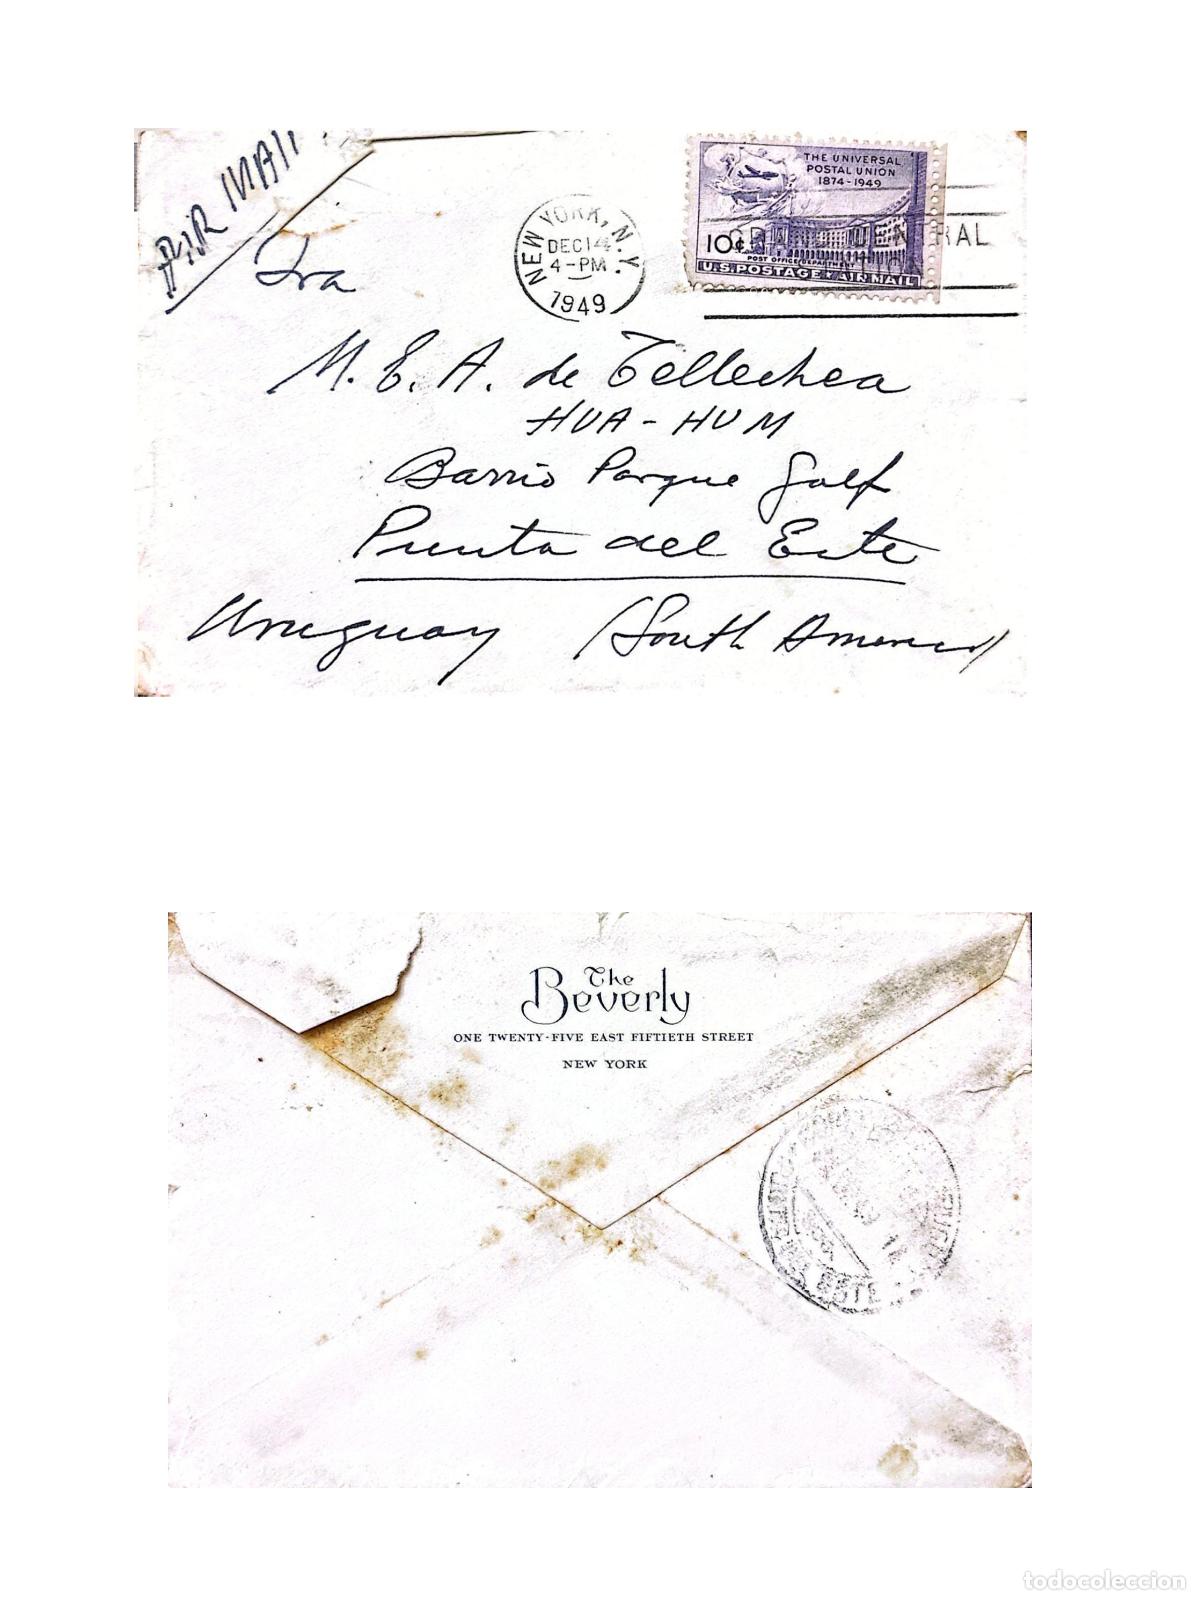 AIR MAIL
NEW YORK, N.Y.
DEC 14
4-PM
1949
THE UNIVERSAL
POSTAL UNION
1874-1949
10¢
POST OFFICE DEPARTMENT
U.S. POSTAGE AIR MAIL
Sra
M. E. A. de Tellechea
HUA-HUM
Barrio Parque Golf
Punta del Este
Uruguay (South America)
The
Beverly
ONE TWENTY-FIVE EAST FIFTIETH STREET
NEW YORK
ESTE
todocoleccion